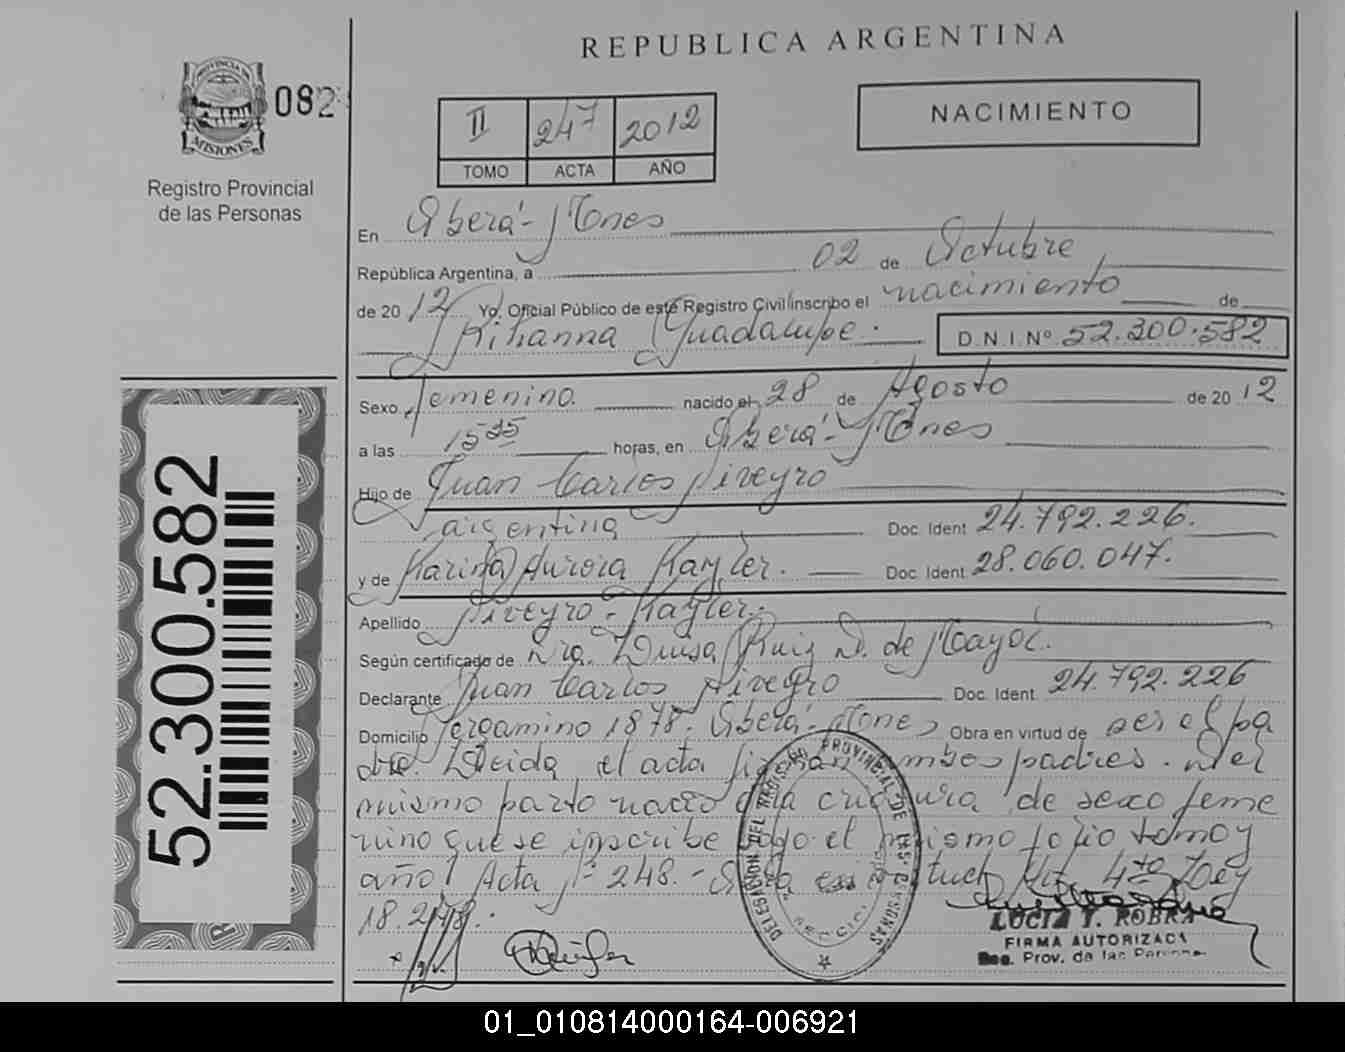 REPUBLICA ARGENTINA
PROVINCIA DE
MISIONES
082
Registro Provincial
de las Personas
II 247 2012
TOMO ACTA AÑO
NACIMIENTO
En Oberá - Mnes
República Argentina, a 02 de Octubre
de 2012 Yo, Oficial Público de este Registro Civil inscribo el nacimiento de
Rihanna Guadalupe. D.N.I.Nº 52.300.582
Sexo femenino. nacido el 28 de Agosto de 2012
a las 15 horas, en Oberá - Mnes
Hijo de Juan Carlos Piveyro
argentina Doc. Ident 24.792.226.
y de Karina Aurora Kayler. Doc. Ident 28.060.047.
Apellido Piveyro - Kayler.
Según certificado de Dra. Luisa Ruiz D. de
Declarante Juan Carlos Piveyro Doc. Ident. 24.792.226
Domicilio Pergamino 1878. Oberá - Mnes Obra en virtud de ser el pa
dre. Leida el acta firman ambos padres. Del
mismo parto nació otra criatura de sexo feme
nino que se inscribe bajo el mismo folio tomo y
año Acta Nº 248. - Ley
18.248.
52.300.582
DELEGACION DEL REGISTRO PROVINCIAL DE LAS PERSONAS
LUCIA T. ROBRA
FIRMA AUTORIZADA
Reg. Prov. de las Personas
01_010814000164-006921